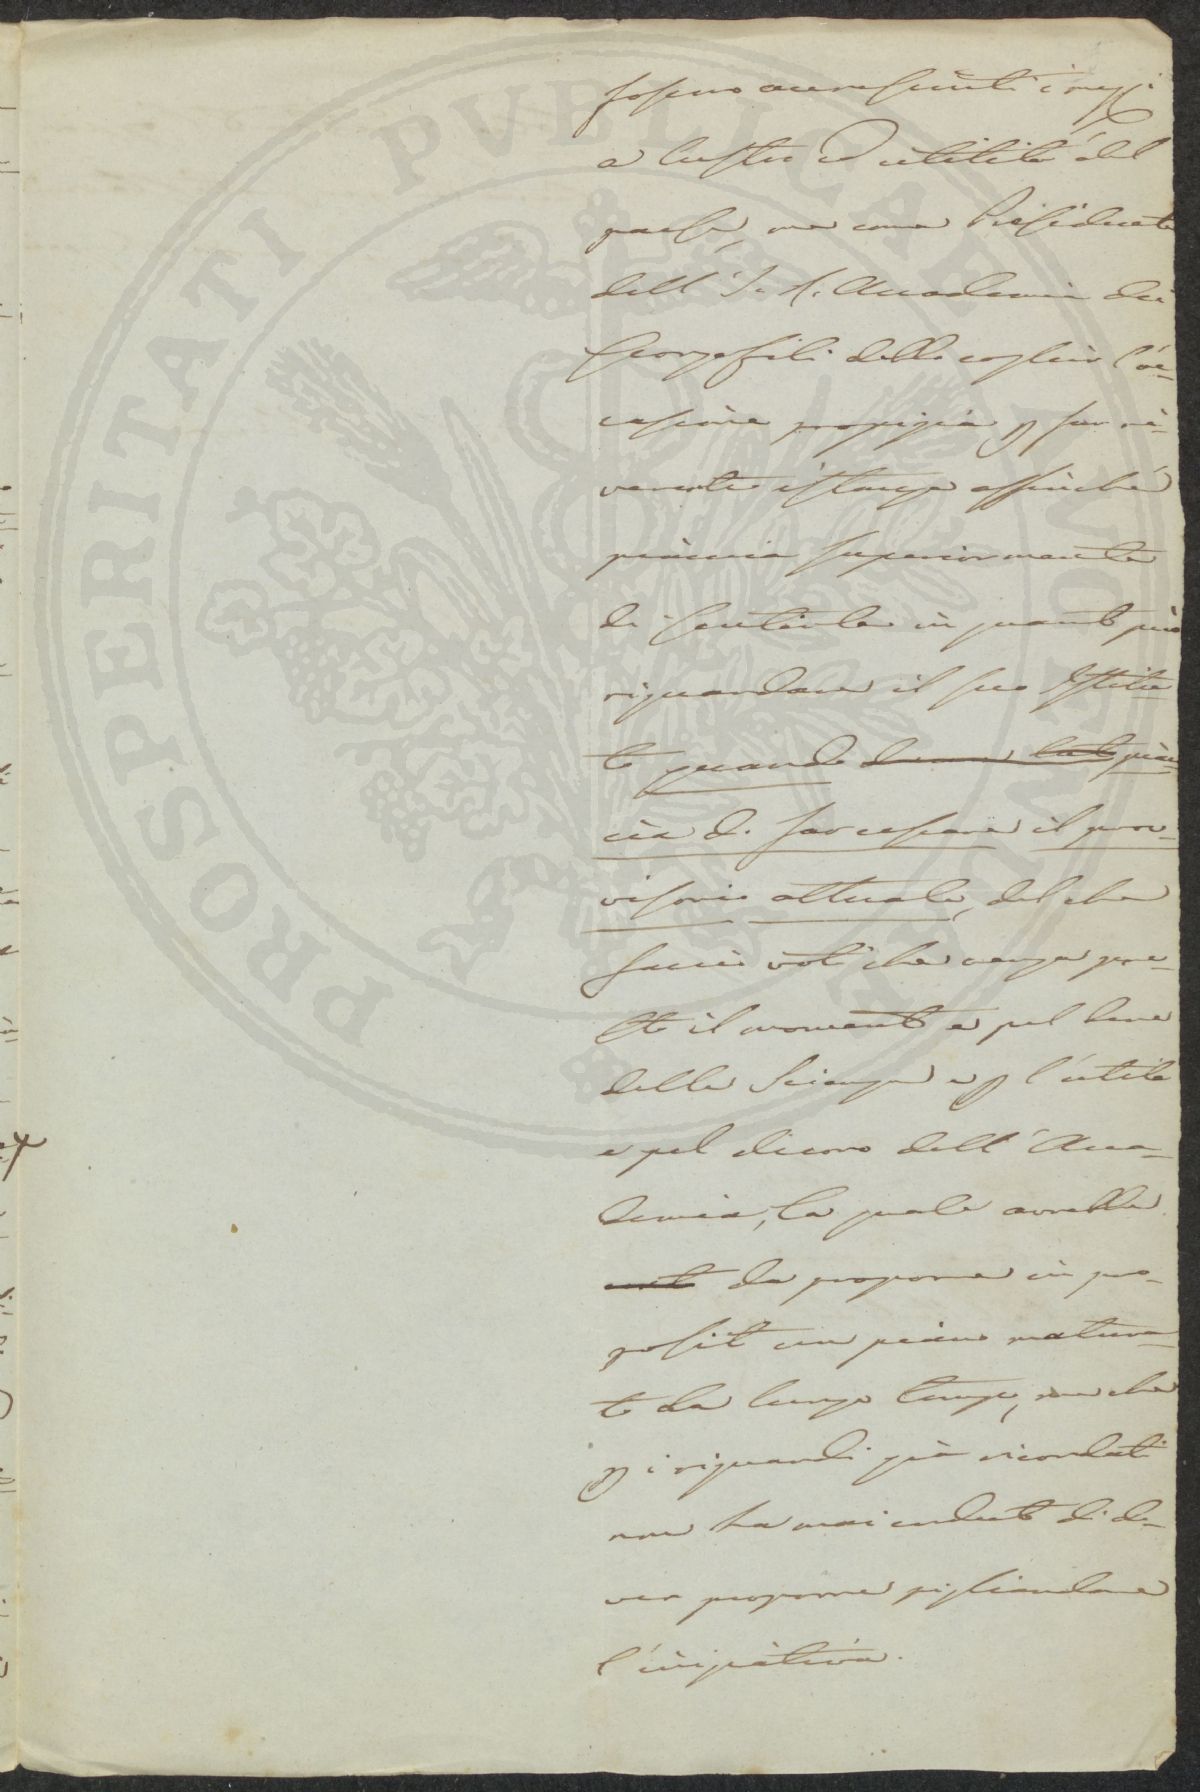 PROSPERITATI PUBLICAE AUGENDAE
fossero accresciuti i mezzi
a lustro ed utilità del
paese, ma come Presidente
dell'I. e R. Accademia dei
Georgofili debbo cogliere l'oc-
casione propizia p far ri-
verente istanza affinchè
piaccia superiormente
di sentirla in quanto può
riguardare il suo Istitu
to quando piac-
cia di far cessare il prov-
visorio attuale, del che
faccio voti che venga pre-
sto il momento e pel bene
delle Scienze e p l'utile
e pel decoro dell'Acca-
demia, la quale avrebbe
da proporre in pro-
posito un piano matura-
to da lungo tempo, ma che
p i riguardi già ricordati
non ha mai creduto di do-
ver proporre pigliandone
l'iniziativa.